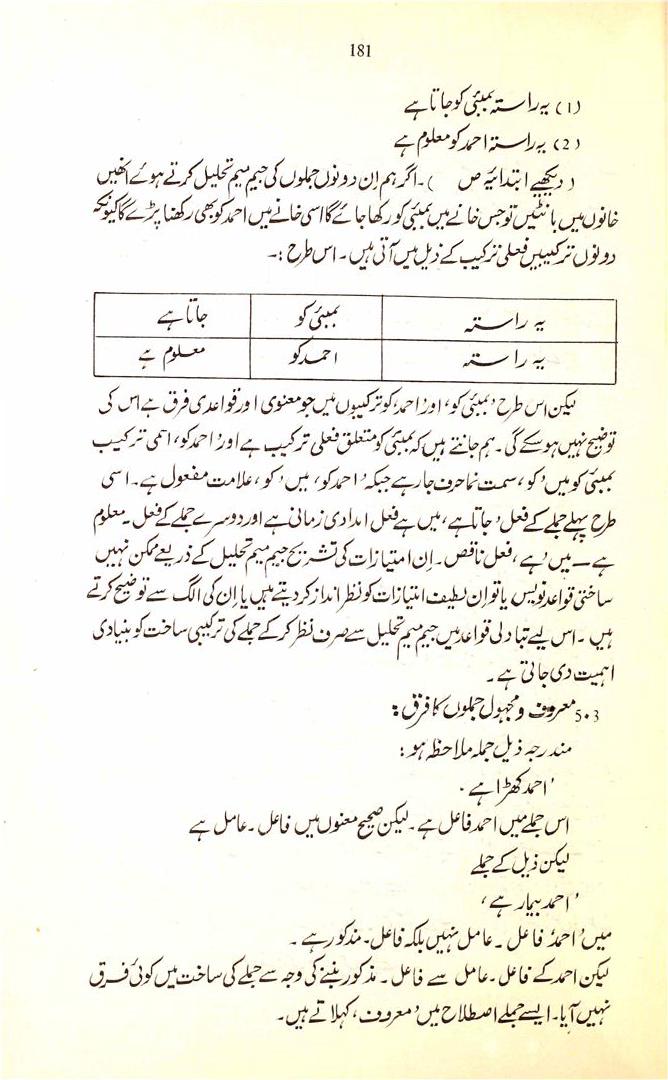 181
(1) یہ راستہ بمبئی کو جاتا ہے
(2) یہ راستہ احمد کو معلوم ہے
(دیکھیے ابتدائیہ ص      )۔ اگر ہم اِن دونوں جملوں کی جیم میم تحلیل کرتے ہوئے انھیں
خانوں میں بانٹیں تو جس خانے میں بمبئی کو رکھا جائے گا اسی خانے میں احمد کو بھی رکھنا پڑے گا کیونکہ
دونوں ترکیبیں فعلی ترکیب کے ذیل میں آتی ہیں۔ اس طرح :۔
یہ راستہ بمبئی کو جاتا ہے
یہ راستہ احمد کو معلوم ہے
لیکن اس طرح 'بمبئی کو' اور 'احمد' کو ترکیبوں میں جو معنوی اور قواعدی فرق ہے اس کی
توضیح نہیں ہو سکے گی۔ ہم جانتے ہیں کہ بمبئی کو متعلق فعلی ترکیب ہے اور 'احمد کو' اسمی ترکیب
بمبئی کو میں 'کو' سمت نما حرف جار ہے جبکہ 'احمد کو' میں 'کو' علامت مفعول ہے۔ اسی
طرح پہلے جملے کے فعل 'جاتا ہے' میں ہے فعل امدادی زمانی ہے اور دوسرے جملے کے فعل ۔ معلوم
ہے ۔ میں 'ہے' فعل ناقص۔ اِن امتیازات کی تشریح جیم میم تحلیل کے ذریعے ممکن نہیں
ساختی قواعد نویس یا تو اِن لطیف امتیازات کو نظر انداز کر دیتے ہیں یا اِن کی الگ سے توضیح کرتے
ہیں۔ اس لیے تبادلی قواعد میں جیم میم تحلیل سے صرف نظر کر کے جملے کی ترکیبی ساخت کو بنیادی
اہمیت دی جاتی ہے۔
5.3 معروف و مجہول جملوں کا فرق :
مندرجہ ذیل جملہ ملاحظہ ہو :
'احمد کھڑا ہے'
اس جملے میں احمد فاعل ہے۔ لیکن صحیح معنوں میں فاعل ۔ عامل ہے
لیکن ذیل کے جملے
'احمد بیمار ہے'
میں 'احمد' فاعل ۔ عامل نہیں بلکہ فاعل ۔ مذکور ہے۔
لیکن احمد کے فاعل ۔ عامل سے فاعل ۔ مذکور بننے کی وجہ سے جملے کی ساخت میں کوئی فرق
نہیں آیا۔ ایسے جملے اصطلاح میں 'معروف' کہلاتے ہیں۔